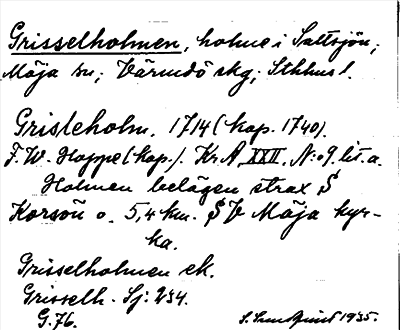 Grisselholmen, holme i Saltsjön;
Möja sn; Värmdö skg; Sthlms l.
Grisleholm. 1714 (kop. 1740).
F. W. Hoppe (kop.). Kr A XXII, N:o 9. lit. a.
Holmen belägen strax S
Korsöu o. 5,4 km. SV Möja kyr-
ka.
Grisselholmen ek.
Grisselh. Sj: 234.
G. 76. 1935.